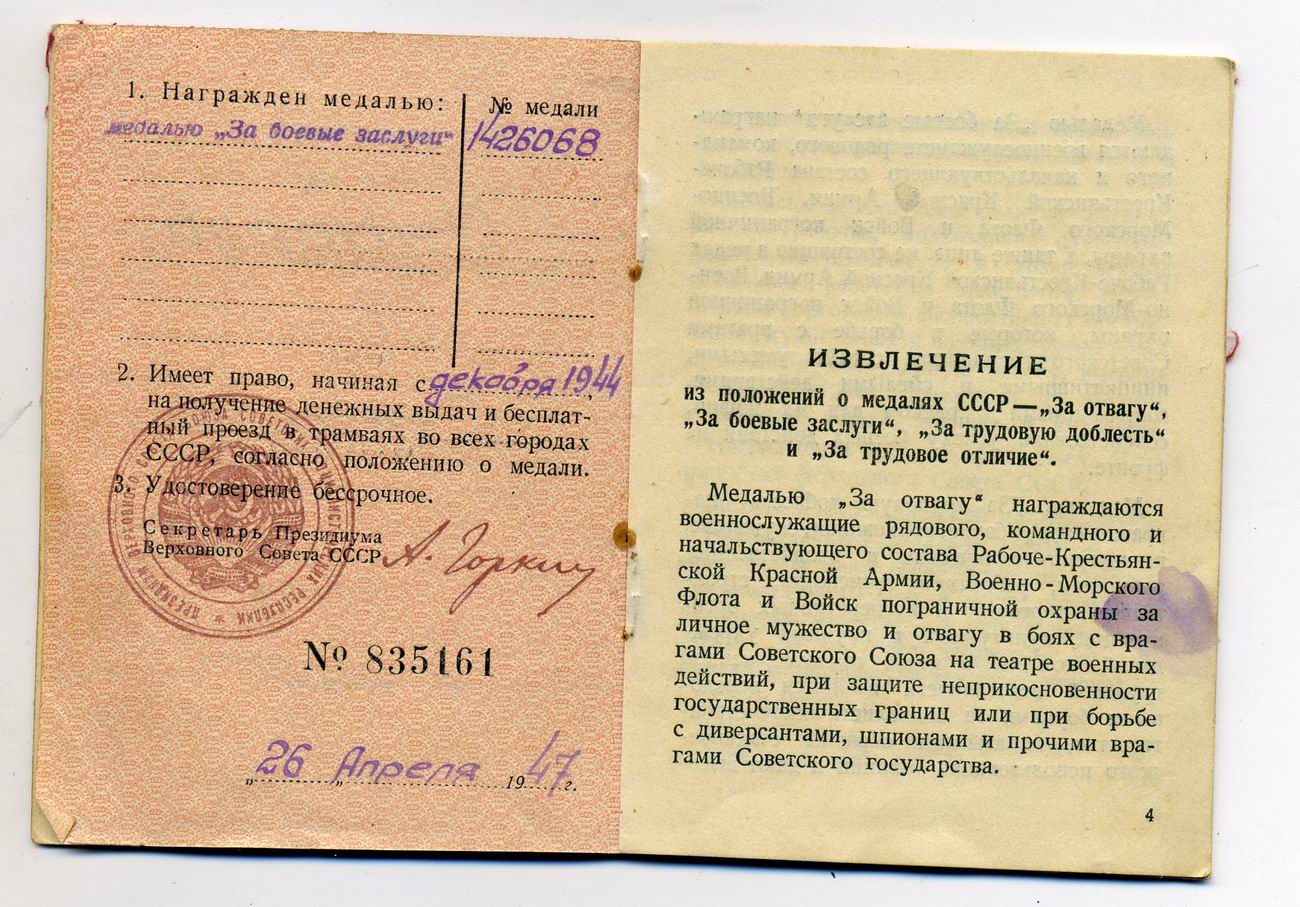 1. Награжден медалью:
№ медали
медалью „За боевые заслуги“
1426068
2. Имеет право, начиная с декабря 1944,
на получение денежных выдач и бесплат-
ный проезд в трамваях во всех городах
СССР, согласно положению о медали.
3. Удостоверение бессрочное.
Секретарь Президиума
Верховного Совета СССР А. Горкин
№ 835161
„26“ Апреля 1947 г.
ИЗВЛЕЧЕНИЕ
из положений о медалях СССР—„За отвагу“,
„За боевые заслуги“, „За трудовую доблесть“
и „За трудовое отличие“.
Медалью „За отвагу“ награждаются
военнослужащие рядового, командного и
начальствующего состава Рабоче-Крестьян-
ской Красной Армии, Военно-Морского
Флота и Войск пограничной охраны за
личное мужество и отвагу в боях с вра-
гами Советского Союза на театре военных
действий, при защите неприкосновенности
государственных границ или при борьбе
с диверсантами, шпионами и прочими вра-
гами Советского государства.
4